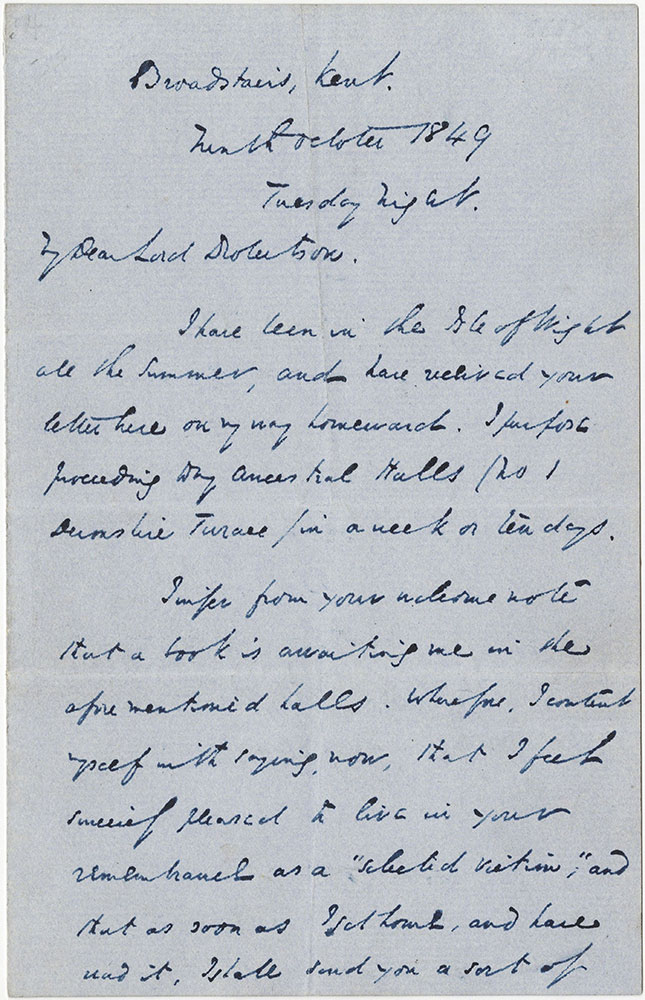 Broadstairs, Kent.
Ninth October 1849
Tuesday Night.
My Dear Lord Robertson.
I have been in the Isle of Wight
all the Summer, and have received your
letter here on my way homeward. I purpose
proceeding to my Ancestral Halls (No 1
Devonshire Terrace) in a week or ten days.
I infer from your welcome note
that a book is awaiting me in the
aforementioned halls. Wherefore, I content
myself with saying, now, that I feel
sincerely pleased to live in your
remembrance as a "selected victim"; and
that as soon as I get home, and have
read it, I shall send you a sort of